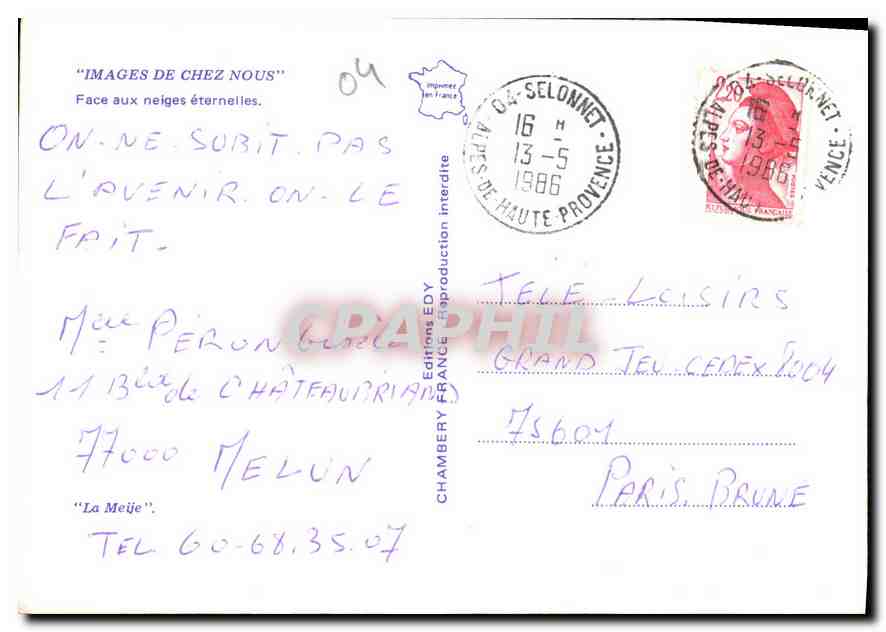 "IMAGES DE CHEZ NOUS"
Face aux neiges éternelles.
04
ON-NE-SUBIT-PAS
L'AVENIR-ON-LE
FAIT-
Mme PÉRON
11 Bld de CHÂTEAUBRIAND
77000 MELUN
"La Meije".
TEL 60-68.35.07
Imprimé
en France
Editions EDY
CHAMBERY FRANCE Reproduction interdite
04-SELONNET
16 H
13-5
1986
ALPES-DE-HAUTE-PROVENCE
2,20
04-SELONNET
16 H
13-5
1986
REPUBLIQUE FRANÇAISE
TÉLÉ-LOISIRS
GRAND JEU-CEDEX 8004
75601
PARIS. BRUNE
CPAPHIL